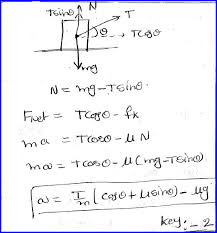 Tsinθ N
T
θ
Tcosθ
mg
N = mg - Tsinθ.
Fnet = Tcosθ - fk
ma = Tcosθ - μN
ma = Tcosθ - μ(mg - Tsinθ)
a = T/m (cosθ + μsinθ) - μg
key: - 2